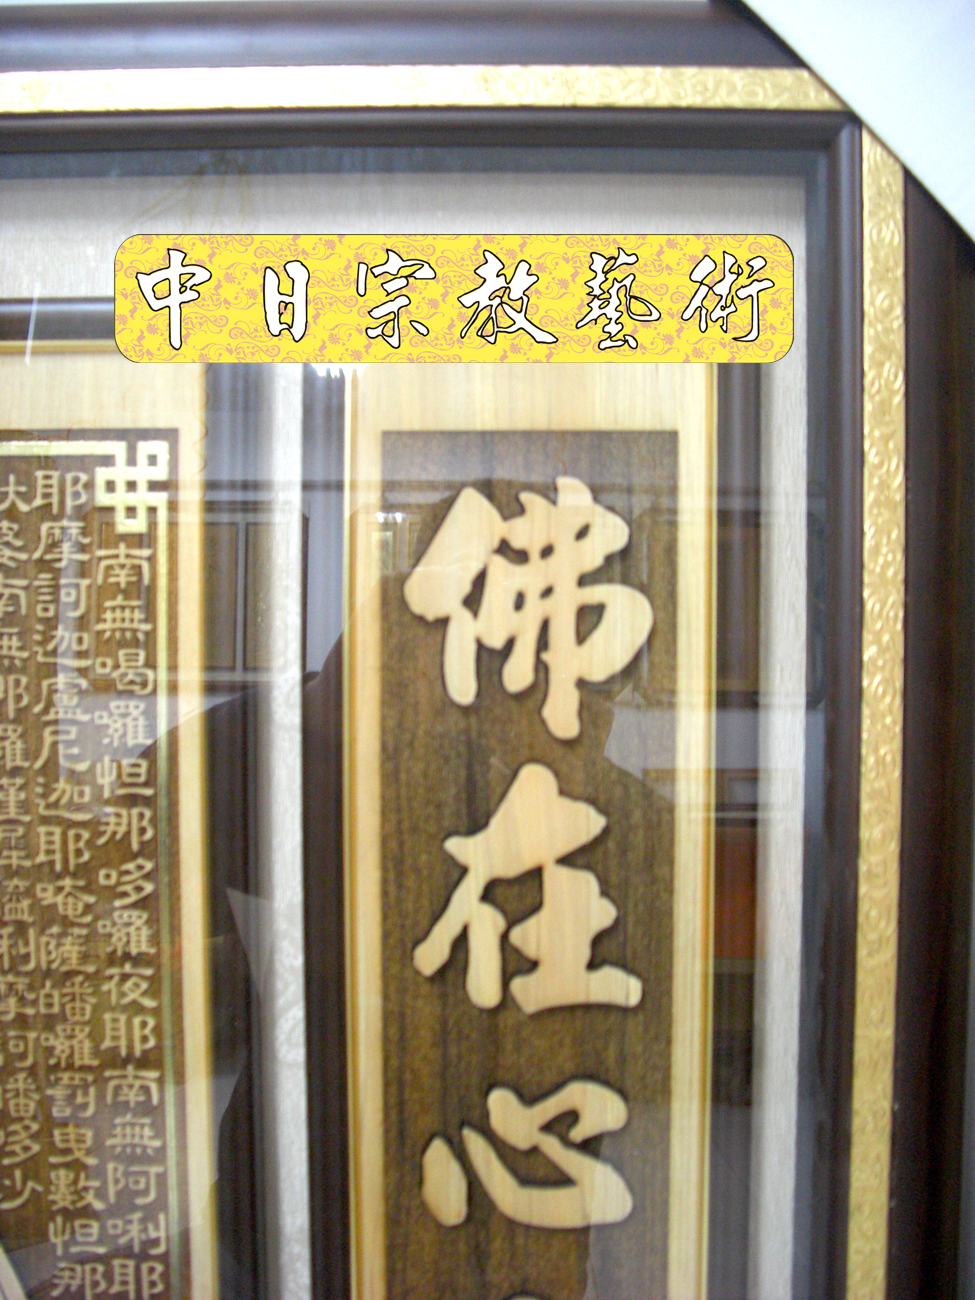 中日宗教藝術
佛在心
南無喝囉怛那哆囉夜耶南無阿唎耶
耶摩訶迦盧尼迦耶唵薩皤囉罰曳數怛那
大婆南無那羅謹墀醯利摩訶皤哆沙